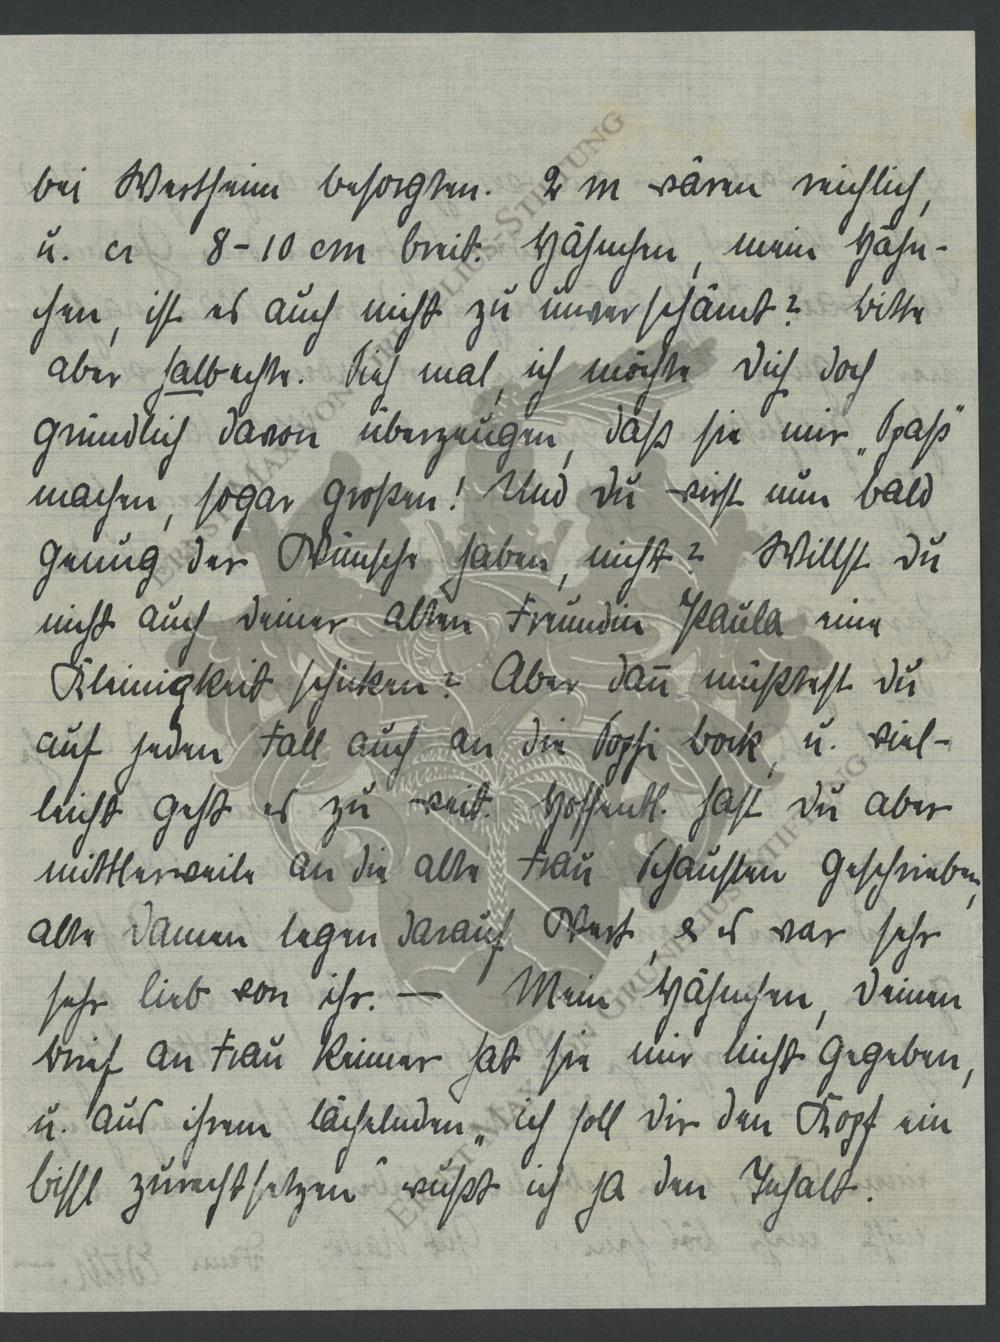 bei Wertheim besorgten. 2 m wären reichlich,
u. ca 8-10 cm breit. Hähnchen, mein Hähn-
chen, ist es auch nicht zu unverschämt? Bitte
aber halbechte. Sieh mal, ich möchte Dich doch
gründlich davon überzeugen, daß sie mir „Spaß"
machen, sogar großen! Und Du wirst nun bald
genug der Wünsche haben, nicht? Willst Du
nicht auch Deiner alten Freundin Paula eine
Kleinigkeit schicken? Aber dan̄ müßtest Du
auf jeden Fall auch an die Sophi Bock, u. viel-
leicht geht es zu weit. Hoffentl. hast Du aber
mittlerweile an die alte Frau Schausten geschrieben,
alte Damen legen darauf Wert, & es war sehr
sehr lieb von ihr. — Mein Hähnchen, Deinen
Brief an Frau Reimer hat sie mir nicht gegeben,
u. aus ihrem lächelnden „ich soll Dir den Kopf ein
bissl zurechtsetzen" wußt ich ja den Inhalt.
ERNST-MAX-VON-GRUNELIUS-STIFTUNG
ERNST-MAX-VON-GRUNELIUS-STIFTUNG